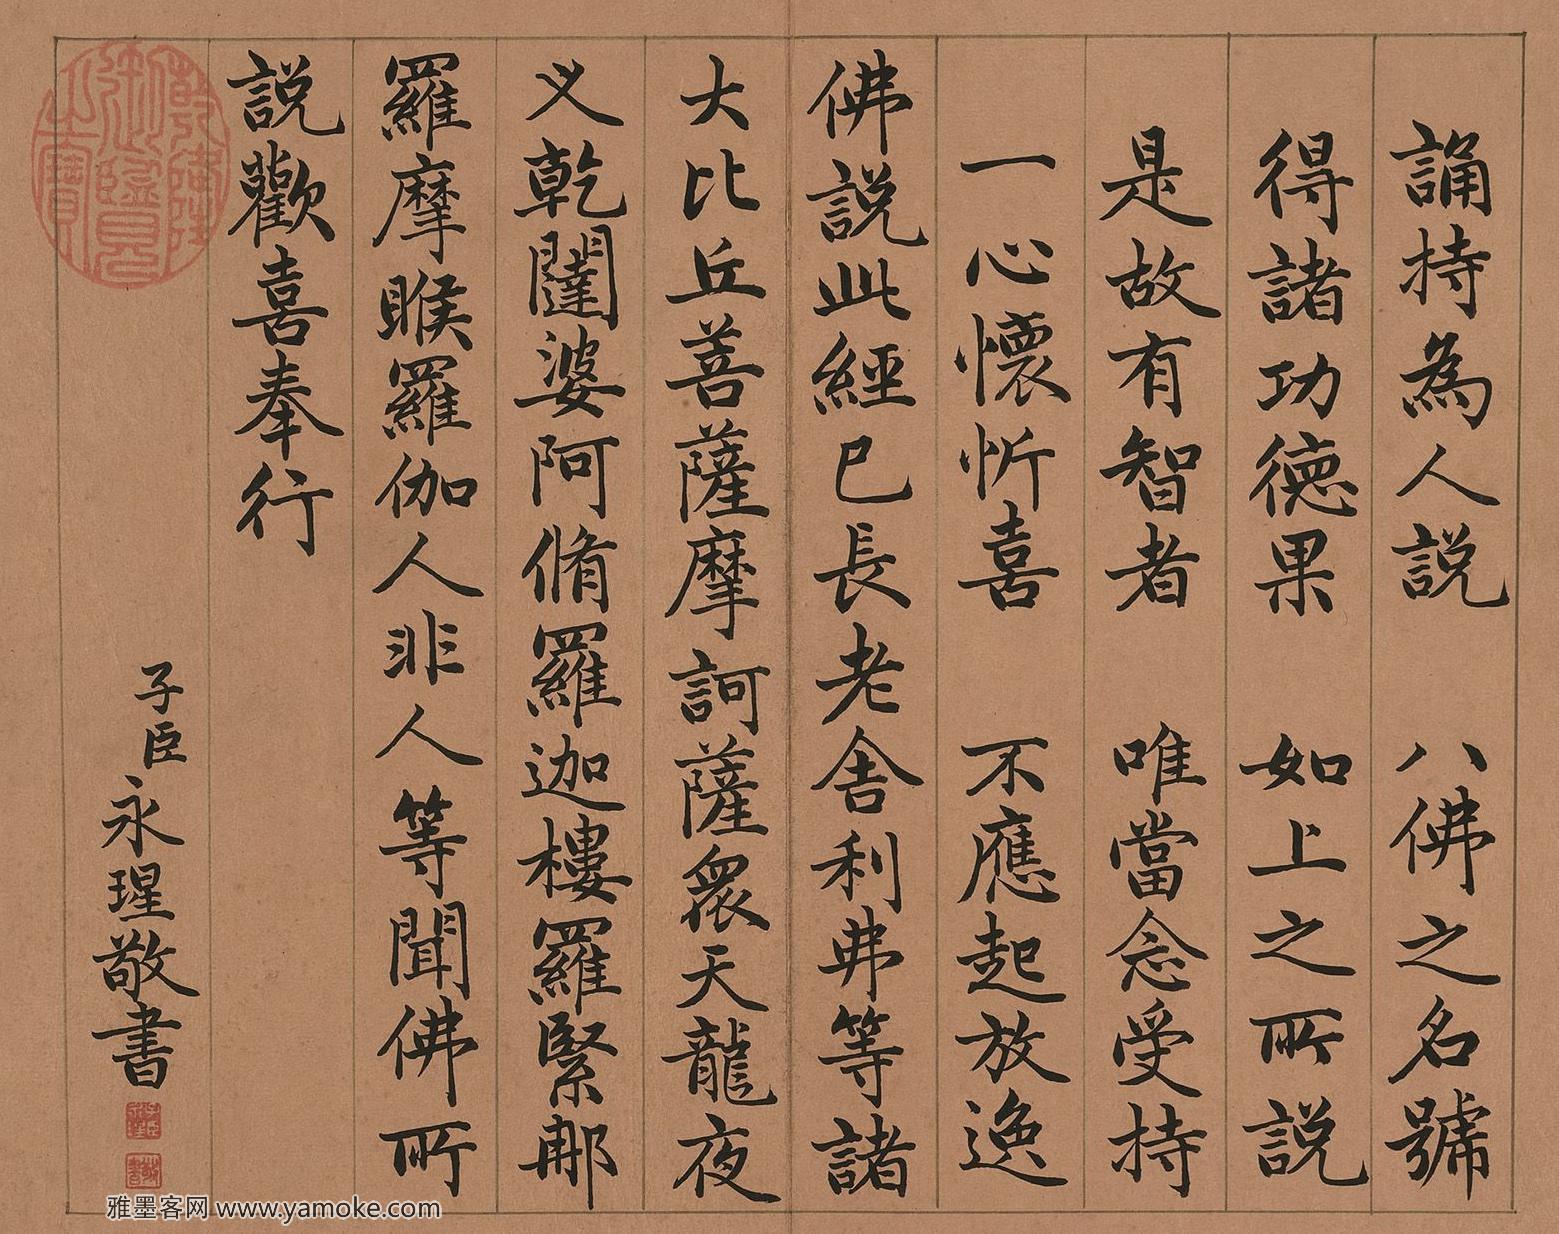 誦持為人説　八佛之名號
得諸功德果　如上之所説
是故有智者　唯當念受持
一心懷忻喜　不應起放逸
佛説此經已長老舍利弗等諸
大比丘善薩摩訶薩衆天龍夜
义乾闥婆阿脩羅迦樓羅緊那
羅摩睺羅伽人非人等聞佛所
説歡喜奉行
子臣永瑆敬書
雅墨客网 www.yamoke.com